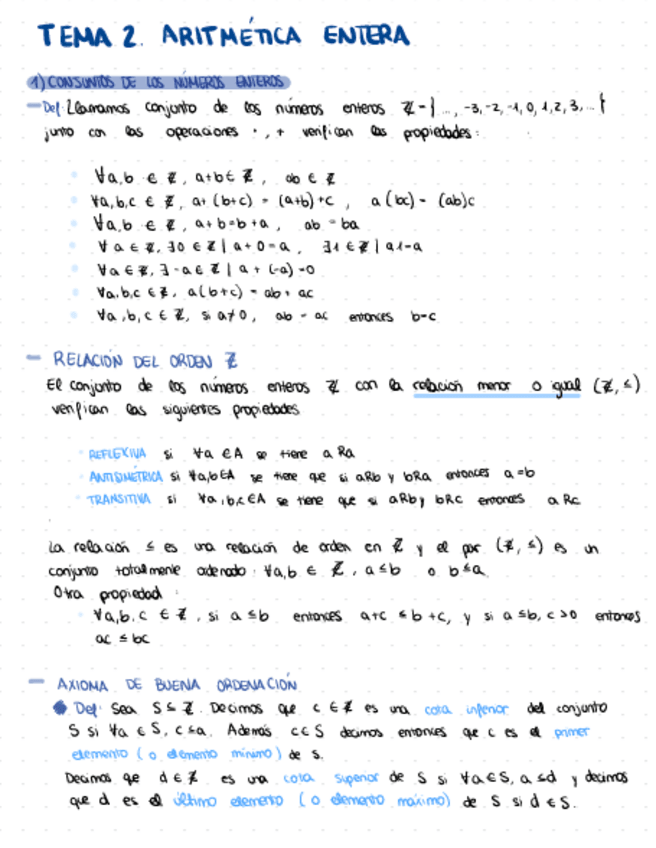 TEMA 2. ARITMÉTICA ENTERA
1) CONJUNTOS DE LOS NÚMEROS ENTEROS
— Def: Llamamos conjunto de los números enteros ℤ = { ..., -3, -2, -1, 0, 1, 2, 3, ... }
junto con las operaciones ·, + verifican las propiedades:
• ∀a,b ∈ ℤ, a+b ∈ ℤ, ab ∈ ℤ
• ∀a,b,c ∈ ℤ, a+(b+c) = (a+b)+c, a(bc) = (ab)c
• ∀a,b ∈ ℤ, a+b=b+a, ab = ba
• ∀a ∈ ℤ, ∃0 ∈ ℤ | a+0=a, ∃1 ∈ ℤ | a1=a
• ∀a ∈ ℤ, ∃-a ∈ ℤ | a + (-a) =0
• ∀a,b,c ∈ ℤ, a(b+c) = ab + ac
• ∀a,b,c ∈ ℤ, si a≠0, ab = ac entonces b=c
— RELACIÓN DEL ORDEN ℤ
El conjunto de los números enteros ℤ con la relación menor o igual (ℤ, ≤)
verifican las siguientes propiedades
• REFLEXIVA si ∀a ∈A se tiene aRa
• ANTISIMÉTRICA si ∀a,b∈A se tiene que si aRb y bRa entonces a=b
• TRANSITIVA si ∀a,b,c∈A se tiene que si aRb y bRc entonces aRc
La relación ≤ es una relación de orden en ℤ y el par (ℤ, ≤) es un
conjunto totalmente ordenado: ∀a,b ∈ ℤ, a≤b o b≤a
Otra propiedad:
• ∀a,b,c ∈ ℤ, si a≤b entonces a+c ≤ b+c, y si a≤b, c>0 entonces
ac ≤ bc
— AXIOMA DE BUENA ORDENACIÓN
Def: Sea S⊆ ℤ. Decimos que c∈ℤ es una cota inferior del conjunto
S si ∀a ∈ S, c≤a. Además c∈S decimos entonces que c es el primer
elemento (o elemento mínimo) de S.
Decimos que d∈ℤ es una cota superior de S si ∀a∈S, a≤d y decimos
que d es el último elemento (o elemento máximo) de S si d∈S.